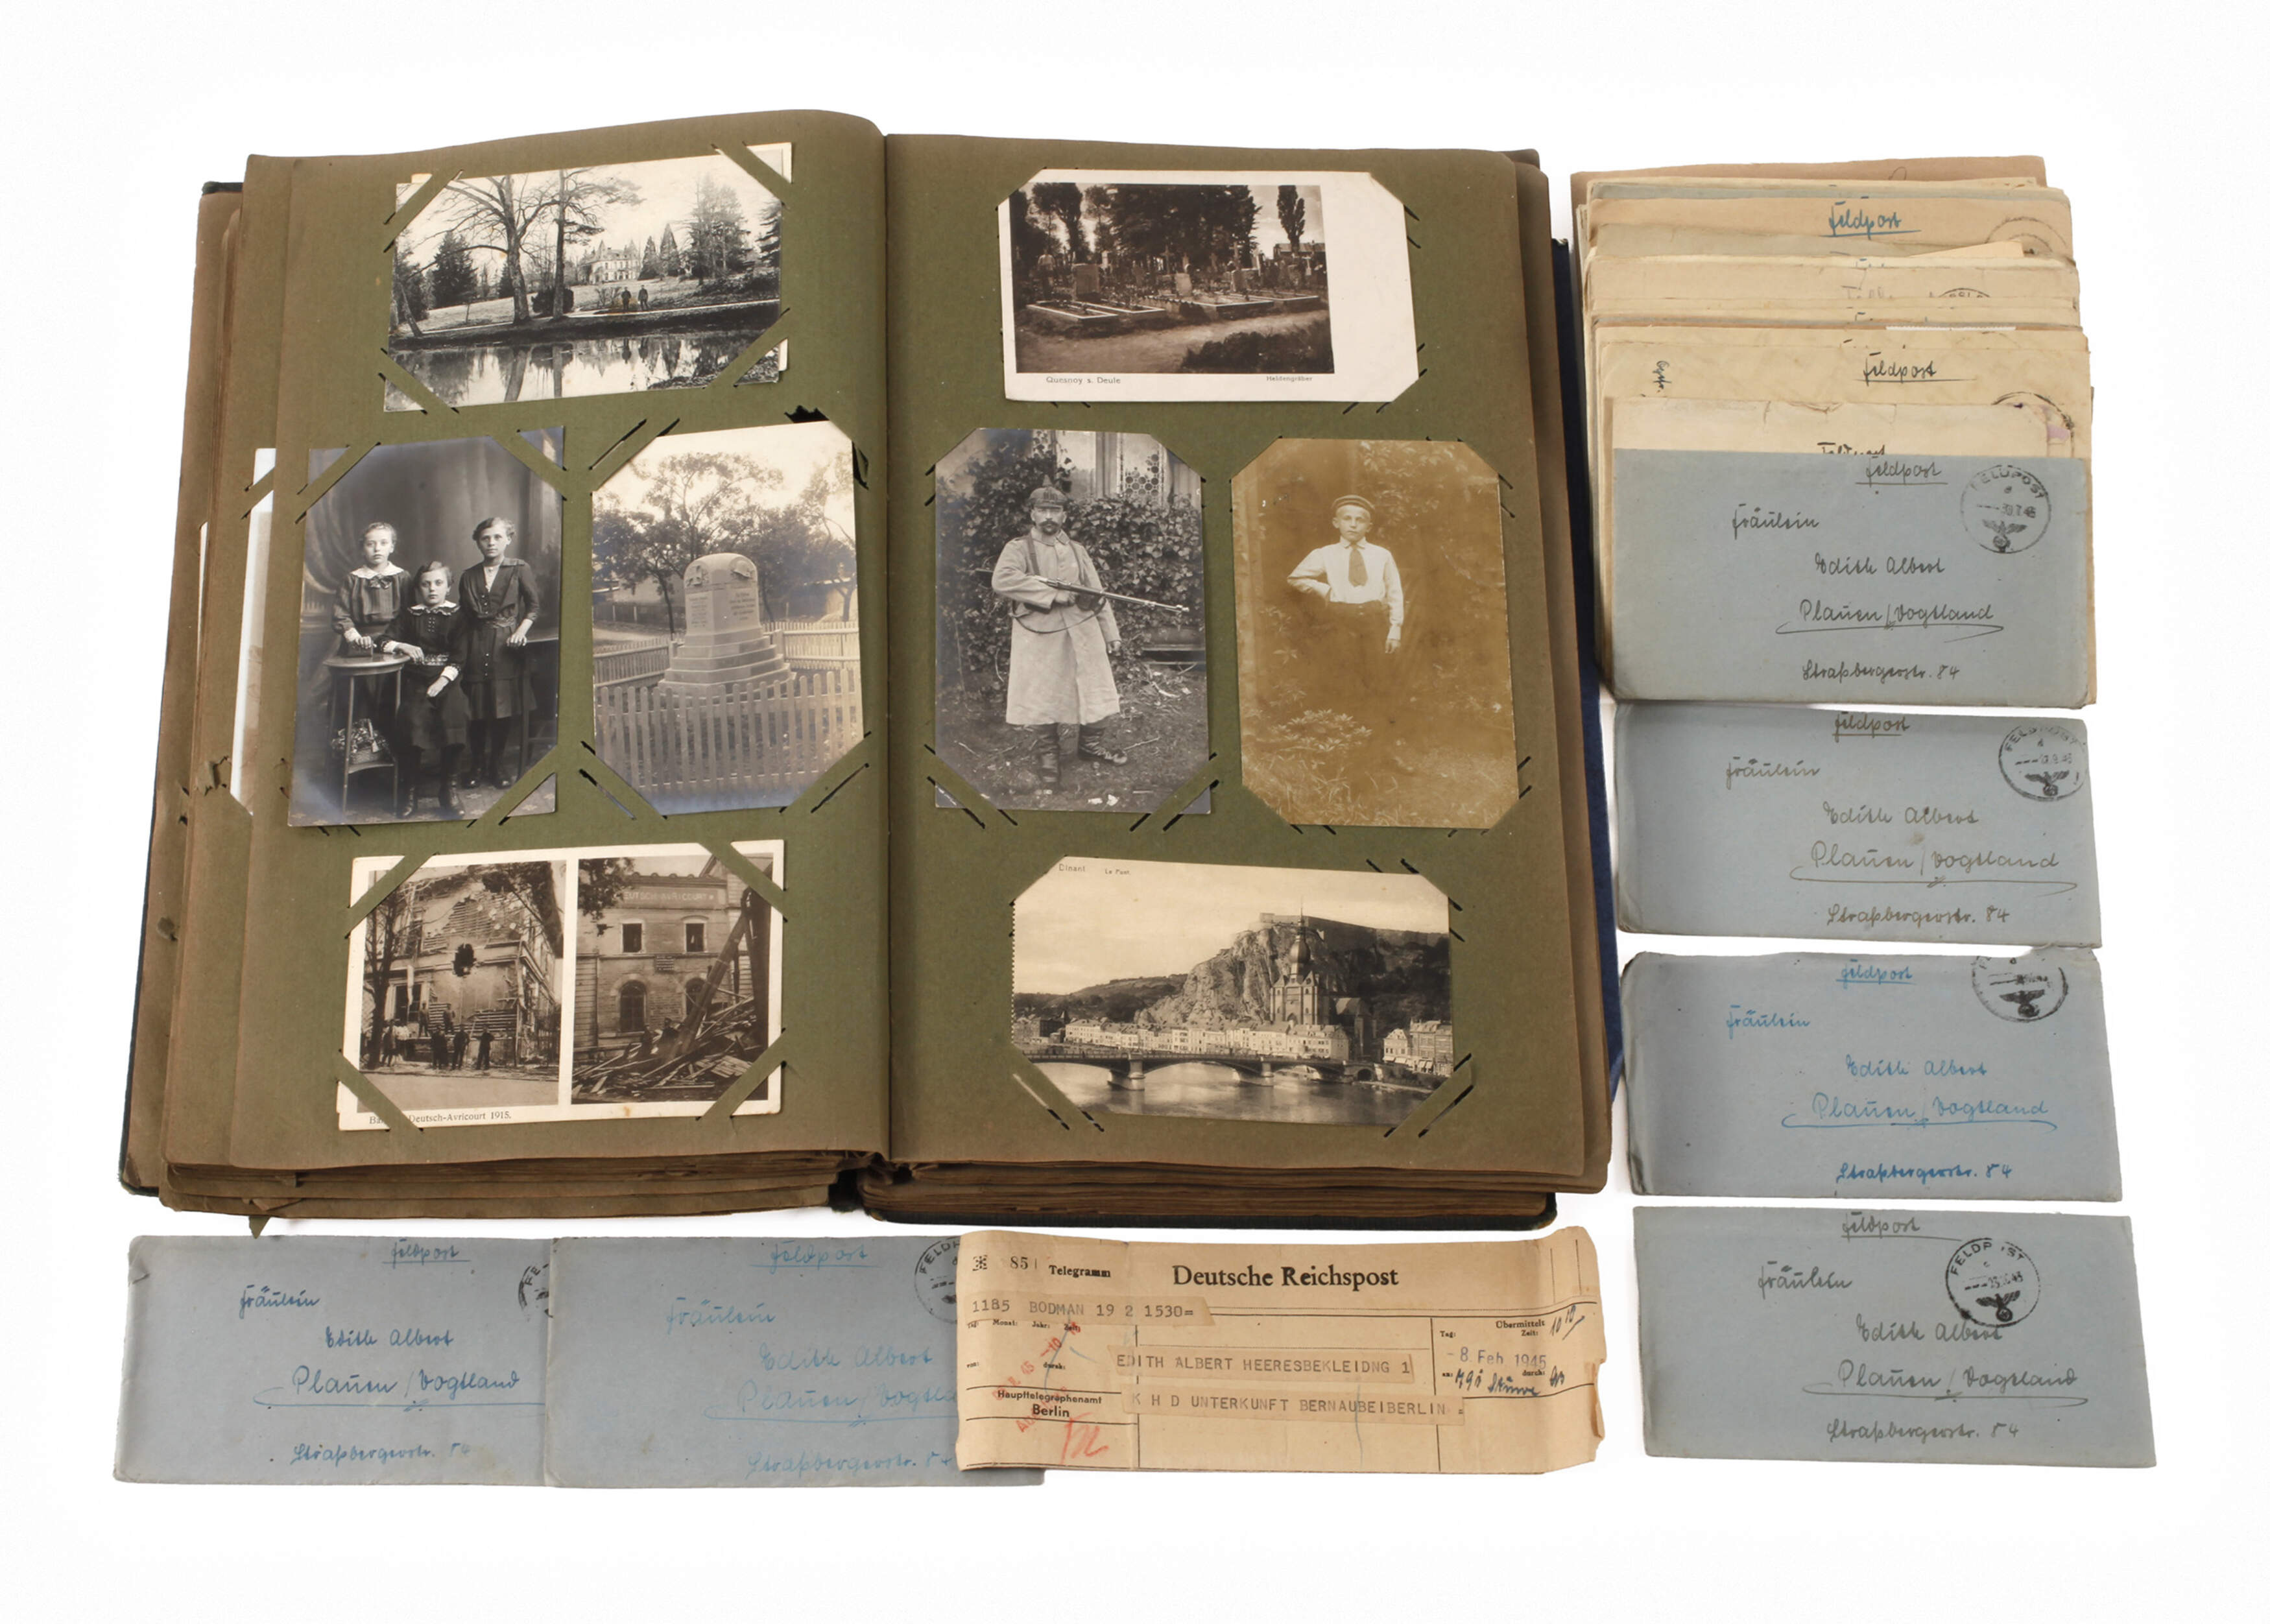 Quesnoy s. Deule
Heldengräber
Deutsch-Avricourt 1915.
Dinant
Le Pont.
Feldpost
Feldpost
Feldpost
Feldpost
FELDPOST
Fräulein
Edith Albert
Plauen/Vogtland
Straßbergerstr. 84
Feldpost
FELDPOST
Fräulein
Edith Albert
Plauen/Vogtland
Straßbergerstr. 84
Feldpost
Fräulein
Edith Albert
Plauen/Vogtland
Straßbergerstr. 84
Feldpost
FELDPOST
Fräulein
Edith Albert
Plauen/Vogtland
Straßbergerstr. 84
Feldpost
Fräulein
Edith Albert
Plauen/Vogtland
Straßbergerstr. 84
Feldpost
Fräulein
Edith Albert
Straßbergerstr. 84
85 Telegramm Deutsche Reichspost
1185 BODMAN 19 2 1530=
Tag: Monat: Jahr: Zeit:
Übermittelt
Tag: Zeit:
durch:
EDITH ALBERT HEERESBEKLEIDNG 1
-8. Feb 1945
an: durch:
Haupttelegraphenamt
Berlin
K H D UNTERKUNFT BERNAUBEIBERLIN =